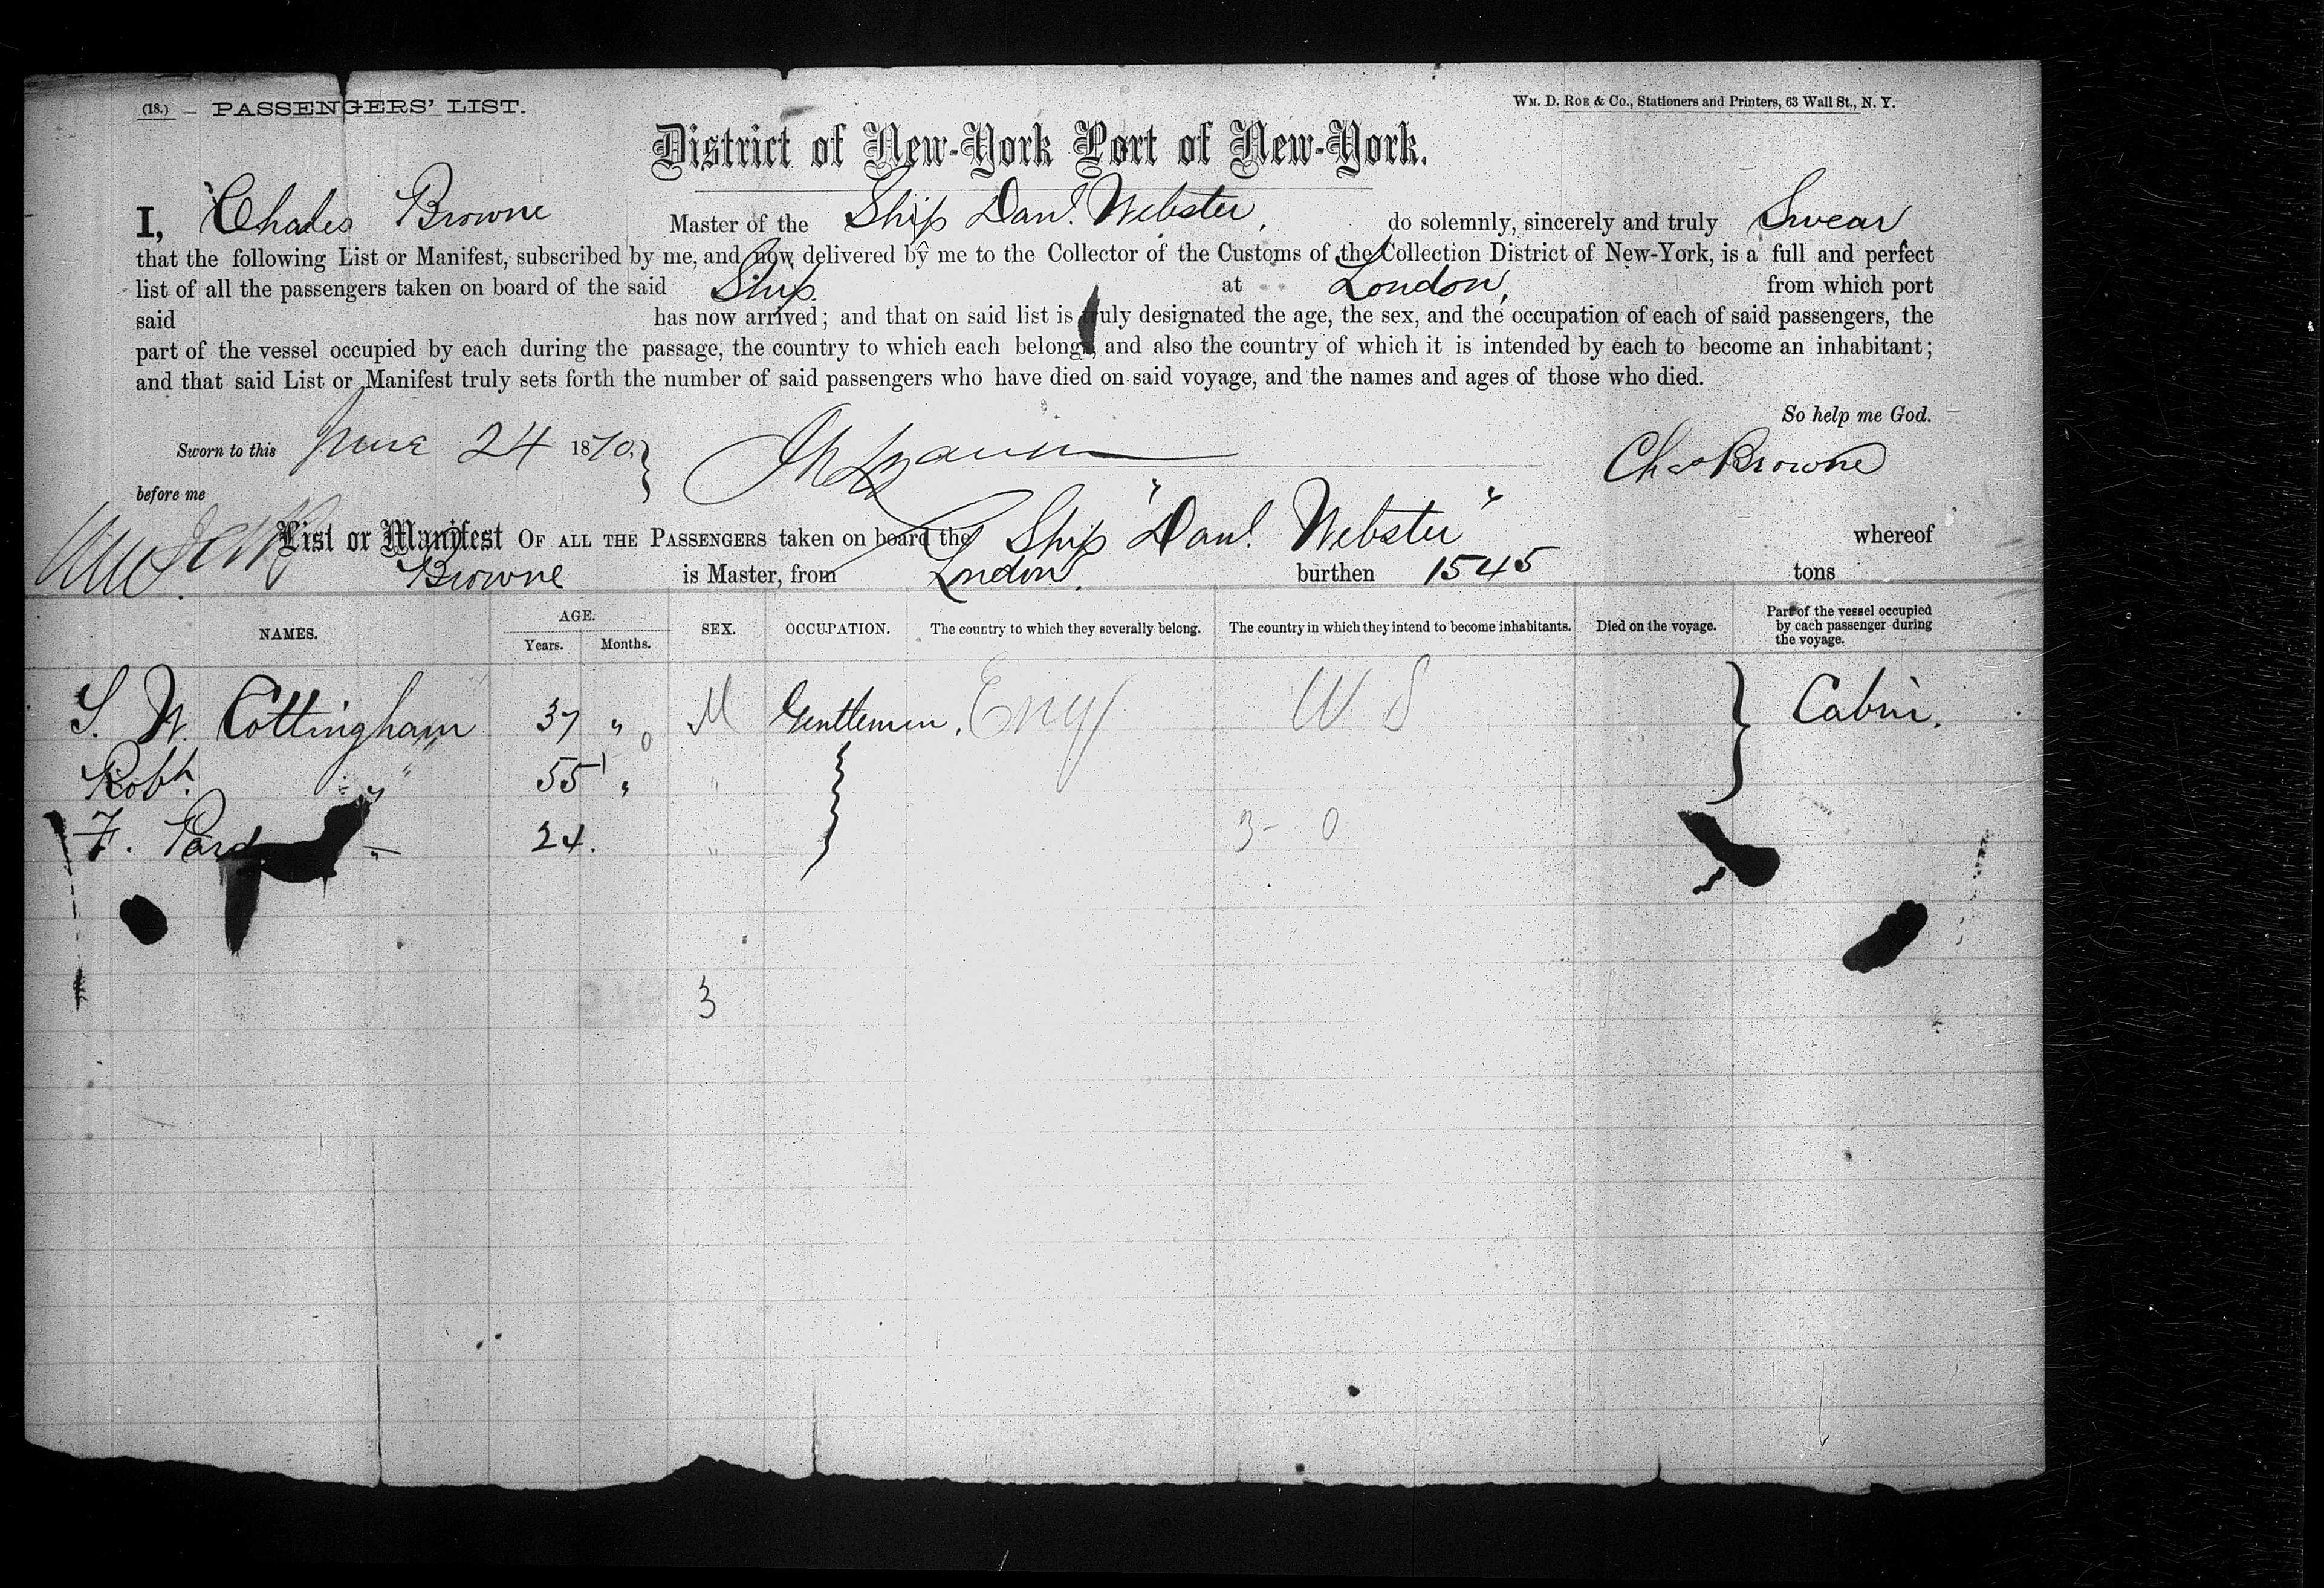 (18.) – PASSENGERS' LIST.
WM. D. ROE & CO., Stationers and Printers, 63 Wall St., N. Y.
District of New-York Port of New-York.
I, Chales Browne Master of the Ship Danl. Webster, do solemnly, sincerely and truly Swear
that the following List or Manifest, subscribed by me, and now delivered by me to the Collector of the Customs of the Collection District of New-York, is a full and perfect
list of all the passengers taken on board of the said Ship at London, from which port
said has now arrived; and that on said list is truly designated the age, the sex, and the occupation of each of said passengers, the
part of the vessel occupied by each during the passage, the country to which each belongs, and also the country of which it is intended by each to become an inhabitant;
and that said List or Manifest truly sets forth the number of said passengers who have died on said voyage, and the names and ages of those who died.
So help me God.
Sworn to this June 24 1870. Chas Browne
before me
List or Manifest OF ALL THE PASSENGERS taken on board the Ship "Danl. Webster" whereof
Browne is Master, from London. burthen 1545 tons
NAMES. AGE. Years. Months. SEX. OCCUPATION. The country to which they severally belong. The country in which they intend to become inhabitants. Died on the voyage. Part of the vessel occupied by each passenger during the voyage.
S. W. Cottingham 37 " M Gentlemen. Eng U S Cabin.
Robt. " " 55 " "
F. 24. " 3 - 0
3